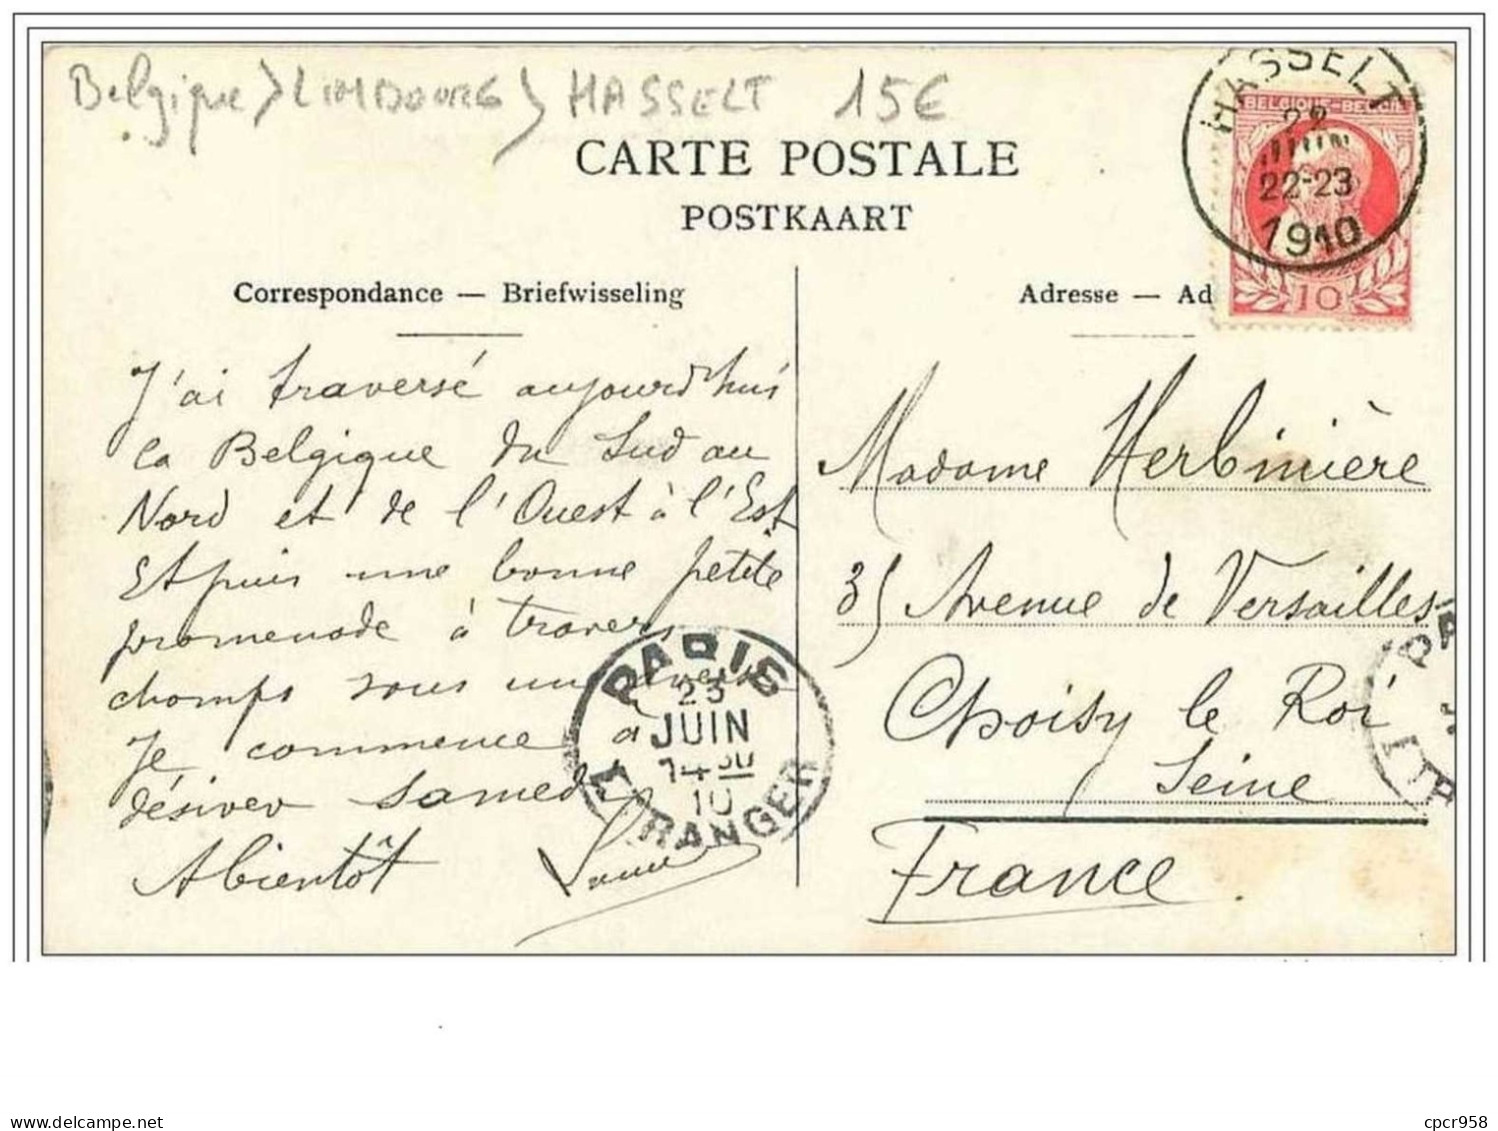 Belgique > LIMBOURG > HASSELT 15€
CARTE POSTALE
POSTKAART
HASSELT
22
JUIN
22-23
1910
BELGIQUE-BELGIË
10
Correspondance — Briefwisseling
Adresse — Ad
J'ai traversé aujourd'hui
la Belgique du Sud au
Nord et de l'Ouest à l'Est
Et puis une bonne petite
promenade à travers
champs sous un
Je commence à
désirer samedi
A bientôt
PARIS
23
JUIN
14 30
10
ETRANGER
Madame Herbinière
35 Avenue de Versailles
Choisy le Roi
Seine
France.
cpcr958